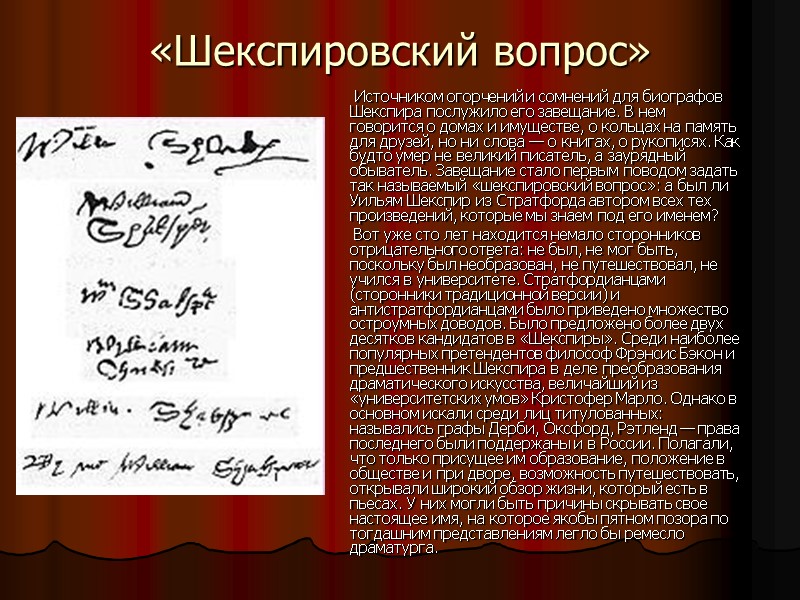 «Шекспировский вопрос»
Источником огорчений и сомнений для биографов
Шекспира послужило его завещание. В нем
говорится о домах и имуществе, о кольцах на память
для друзей, но ни слова — о книгах, о рукописях. Как
будто умер не великий писатель, а заурядный
обыватель. Завещание стало первым поводом задать
так называемый «шекспировский вопрос»: а был ли
Уильям Шекспир из Стратфорда автором всех тех
произведений, которые мы знаем под его именем?
Вот уже сто лет находится немало сторонников
отрицательного ответа: не был, не мог быть,
поскольку был необразован, не путешествовал, не
учился в университете. Стратфордианцами
(сторонники традиционной версии) и
антистратфордианцами было приведено множество
остроумных доводов. Было предложено более двух
десятков кандидатов в «Шекспиры». Среди наиболее
популярных претендентов философ Фрэнсис Бэкон и
предшественник Шекспира в деле преобразования
драматического искусства, величайший из
«университетских умов» Кристофер Марло. Однако в
основном искали среди лиц титулованных:
назывались графы Дерби, Оксфорд, Рэтленд — права
последнего были поддержаны и в России. Полагали,
что только присущее им образование, положение в
обществе и при дворе, возможность путешествовать,
открывали широкий обзор жизни, который есть в
пьесах. У них могли быть причины скрывать свое
настоящее имя, на которое якобы пятном позора по
тогдашним представлениям легло бы ремесло
драматурга.